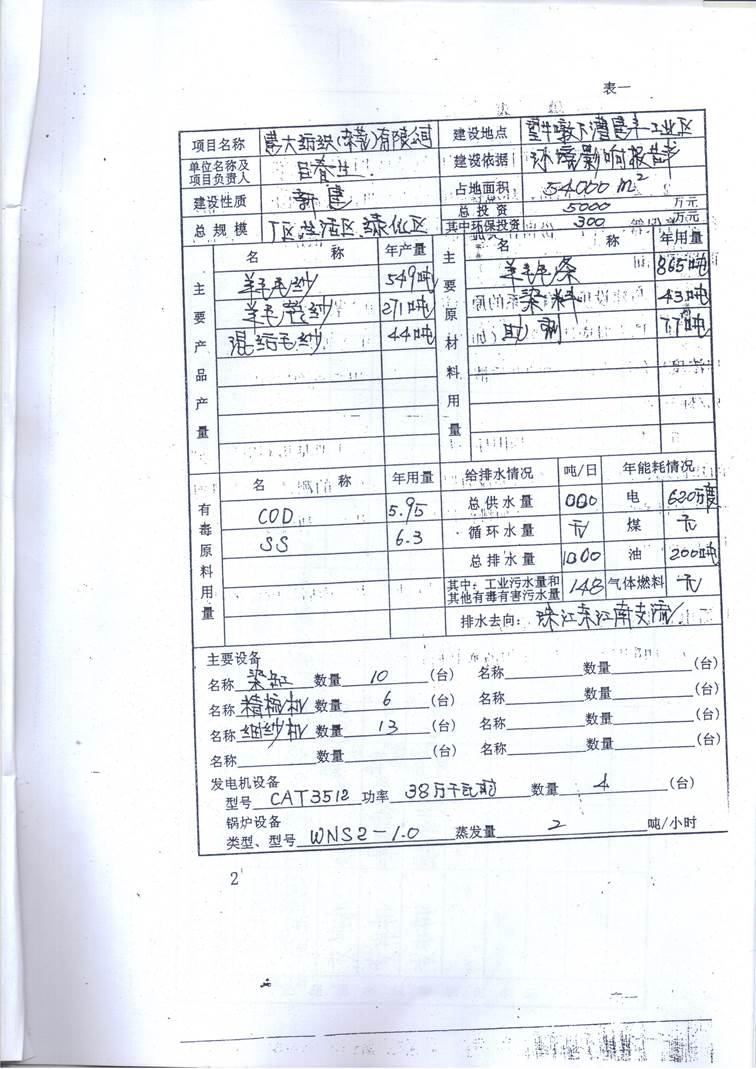 表一
项目名称 南大纺织(东莞)有限公司 建设地点 望牛墩下漕富丰工业区
单位名称及项目负责人 吕春生 建设依据 环境影响报告书
建设性质 新建 占地面积 54000 m²
总投资 5000 万元
总规模 厂区、生活区、绿化区 其中环保投资 300 万元
主要产品产量 名称 年产量 主要原材料用量 名称 年用量
羊毛毛纱 549吨 羊毛毛条 865吨
271吨 染料 43吨
混纺毛纱 44吨 助剂 7.7吨
有毒原料用量 名称 年用量 给排水情况 吨/日 年能耗情况
COD 5.95 总供水量 电 620万度
SS 6.3 循环水量 无 煤 无
总排水量 1000 油 200吨
其中:工业污水量和其他有毒有害污水量 148 气体燃料 无
排水去向: 珠江东江南支流
主要设备
名称 染缸 数量 10 (台) 名称 数量 (台)
名称 精梳机 数量 6 (台) 名称 数量 (台)
名称 细纱机 数量 13 (台) 名称 数量 (台)
名称 数量 (台) 名称 数量 (台)
发电机设备
型号 CAT3512 功率 38万千瓦时 数量 4 (台)
锅炉设备
类型、型号 WNS2-1.0 蒸发量 2 吨/小时
2